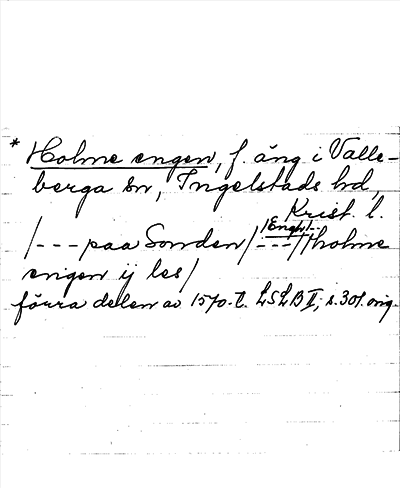 * Holme engen, f. äng i Valle-
berga sn, Ingelstads hd,
Krist. l.
/Engh/
/---paa Sonden/---/Iholme
engen ij les/
förra delen av 1570-t. LSLB II, s. 301. orig.